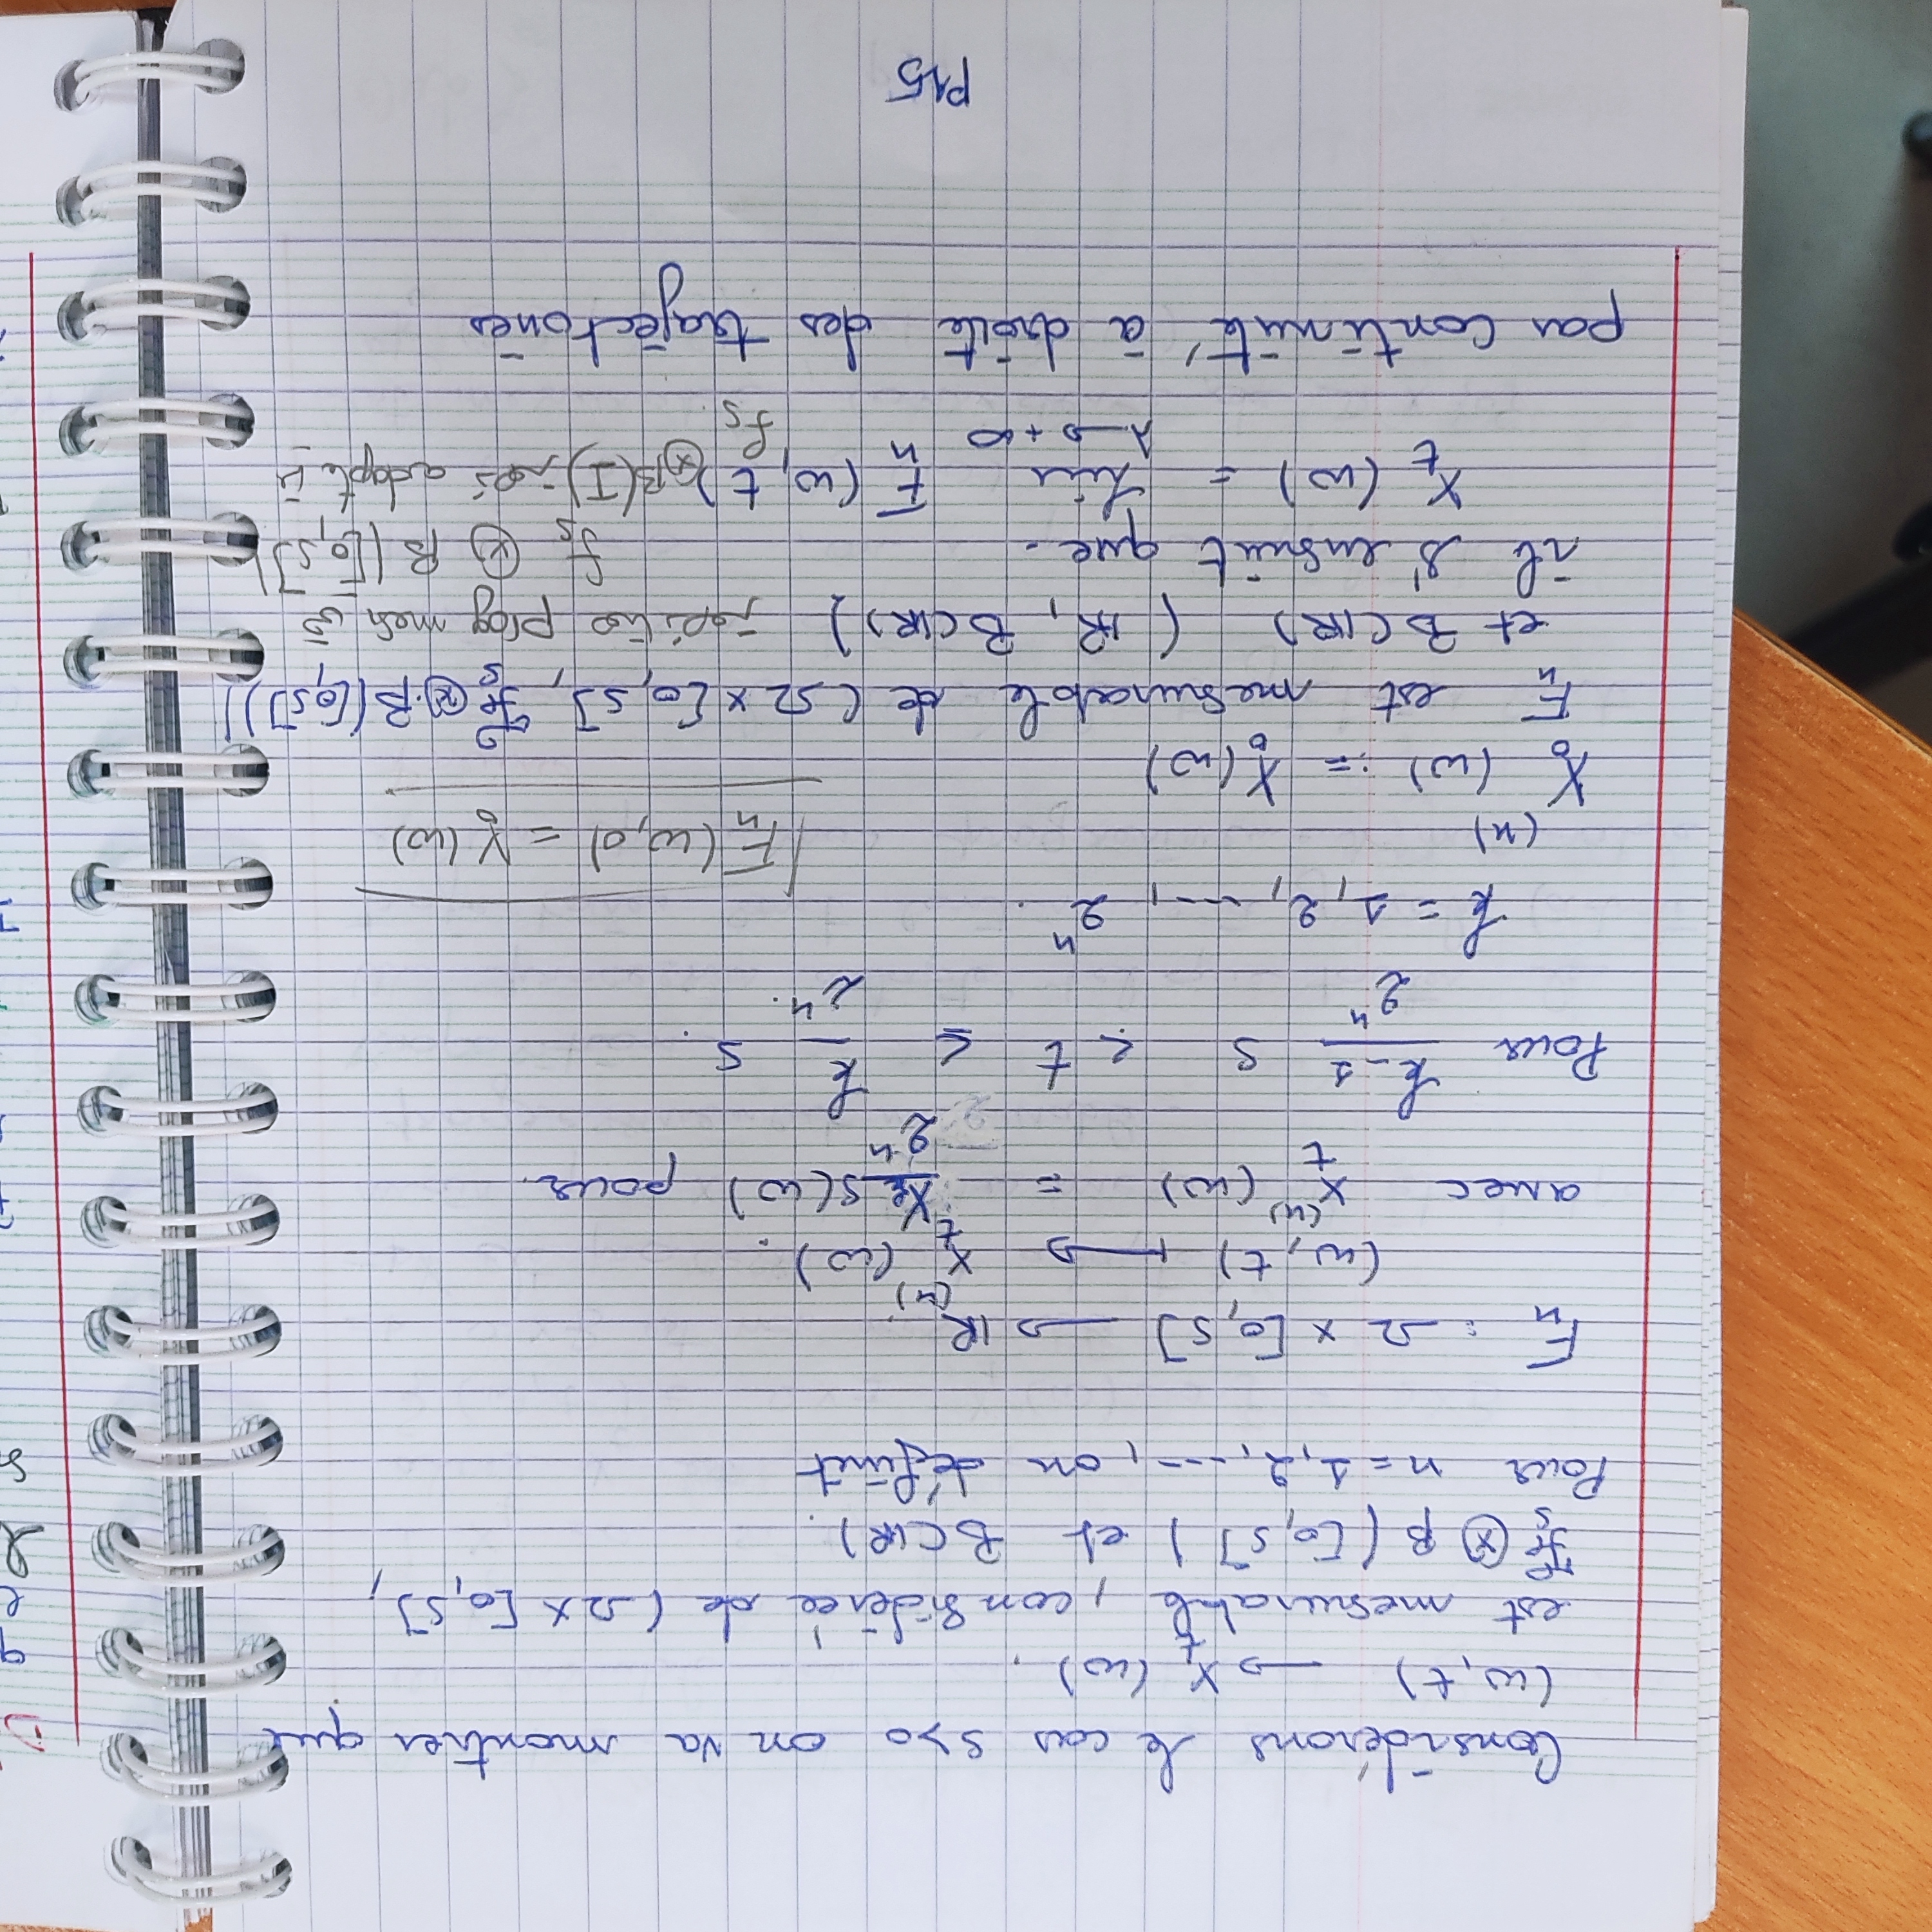 Considérons le cas s>0 on va montrer que
(ω,t) → X_t (ω).
est mesurable, considérée de (Ω × [0,S],
F_s ⊗ β ([0,S]) et B(IR).
Pour n = 1,2,---, on définit
F_n : Ω × [0,S] → IR.
(ω,t) ↦ X_t^(n) (ω).
avec X_t^(n) (ω) = X_{k/2^n} s(ω) pour.
Pour (k-1)/2^n s < t ≤ k/2^n s.
k = 1,2,---, 2^n.
F_n(ω,0) = X_0(ω)
X_0^(n) (ω) := X_0(ω)
F_n est mesurable de (Ω × [0,S], F_s ⊗ B([0,S]))
et B(IR) (IR, B(IR)) prog mes
il s'ensuit que. f_s ⊗ B([0,S])
X_t (ω) = lim_{λ → +∞} F_n (ω,t) f_s ⊗ B(I) adapte
par continuité à droite des trajectoriés
P15